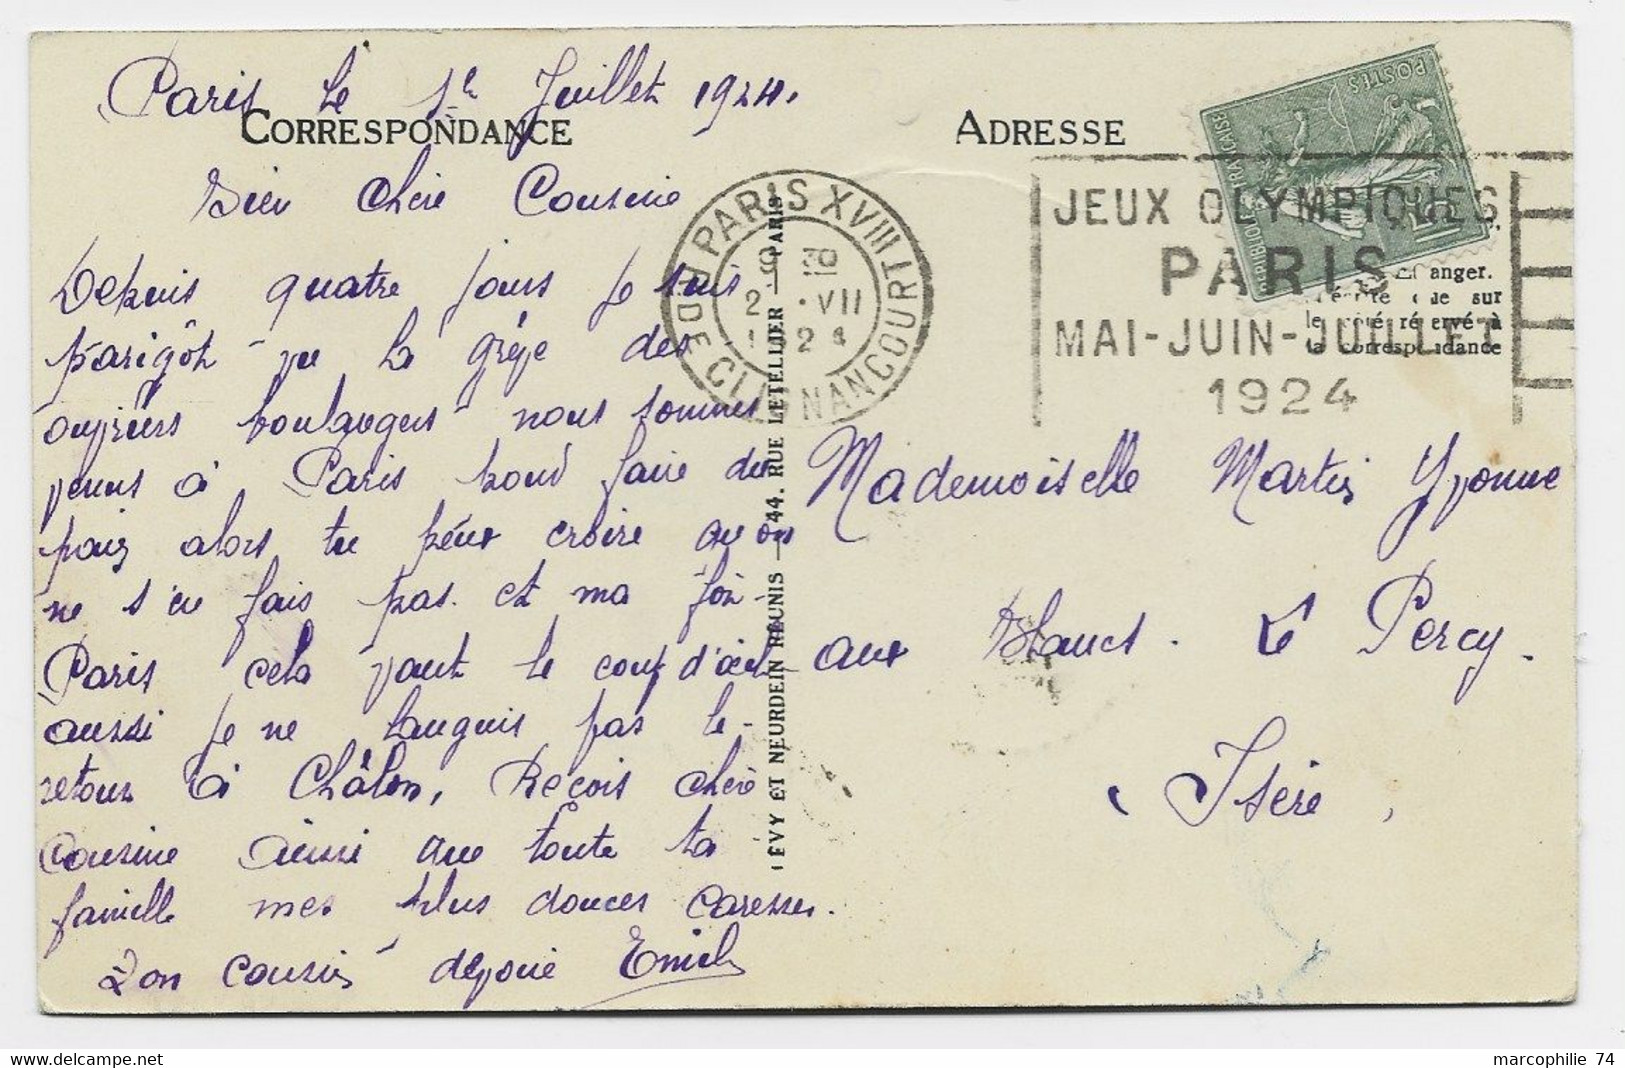 Paris le 1e Juillet 1924.
CORRESPONDANCE
ADRESSE
Bien chère Cousine
Depuis quatre jours je suis
parigôt vu la grève des
ouvriers boulangers nous sommes
venus à Paris pour faire du
pain alors tu peux croire qu'on
ne s'en fais pas. et ma foi
Paris cela vaut le coup d'œil
aussi je ne languis pas le
retour à Châlon, Reçois chère
Cousine ainsi que toute ta
famille mes plus douces caresses.
Ton cousin dévoué Emile
LEVY ET NEURDEIN REUNIS — 44. RUE LETELLIER — PARIS
PARIS XVIII
R. DE CLIGNANCOURT
9 30
2 · VII
1924
POSTES
JEUX OLYMPIQUES
PARIS
MAI-JUIN-JUILLET
1924
anger.
sur
le côté réservé à
la correspondance
Mademoiselle Martin Yvonne
aux Blancs. Le Percy.
(Isère)
marcophilie 74